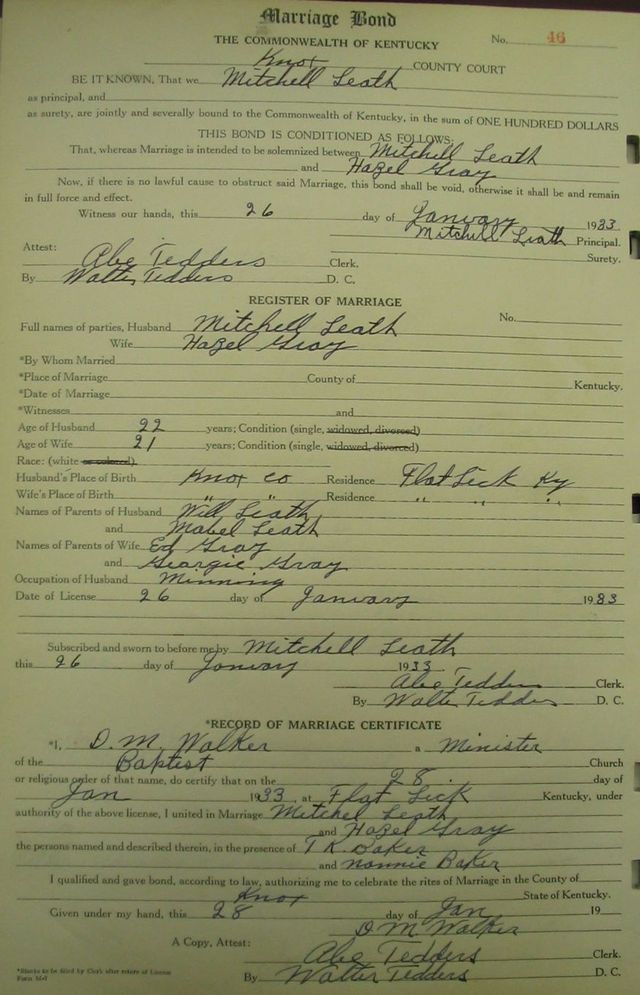 Marriage Bond
THE COMMONWEALTH OF KENTUCKY No. 46
Knox COUNTY COURT
BE IT KNOWN, That we Mitchell Leath
as principal, and
as surety, are jointly and severally bound to the Commonwealth of Kentucky, in the sum of ONE HUNDRED DOLLARS
THIS BOND IS CONDITIONED AS FOLLOWS:
That, whereas Marriage is intended to be solemnized between Mitchell Leath
and Hazel Gray
Now, if there is no lawful cause to obstruct said Marriage, this bond shall be void, otherwise it shall be and remain
in full force and effect.
Witness our hands, this 26 day of January 1933
Mitchell Leath Principal.
Attest: Surety.
Abe Tedders Clerk.
By Walter Tedders D. C.
REGISTER OF MARRIAGE
Full names of parties, Husband Mitchell Leath No.
Wife Hazel Gray
*By Whom Married
*Place of Marriage County of Kentucky.
*Date of Marriage
*Witnesses and
Age of Husband 22 years; Condition (single, widowed, divorced)
Age of Wife 21 years; Condition (single, widowed, divorced)
Race: (white or colored).
Husband's Place of Birth Knox co Residence Flat Lick Ky
Wife's Place of Birth " " Residence " " "
Names of Parents of Husband Will Leath
and Mabel Leath
Names of Parents of Wife Ed Gray
and Georgie Gray
Occupation of Husband Minning
Date of License 26 day of January 1933
Subscribed and sworn to before me by Mitchell Leath
this 26 day of January 1933.
Abe Tedders Clerk.
By Walter Tedders D. C.
*RECORD OF MARRIAGE CERTIFICATE
*I, D. M. Walker a Minister
of the Baptist Church
or religious order of that name, do certify that on the 28 day of
Jan 1933, at Flat Lick Kentucky, under
authority of the above license, I united in Marriage Mitchel Leath
and Hazel Gray
the persons named and described therein, in the presence of T R. Baker
and Nannie Baker
I qualified and gave bond, according to law, authorizing me to celebrate the rites of Marriage in the County of
Knox State of Kentucky.
Given under my hand, this 28 day of Jan 19
D M Walker
A Copy, Attest: Abe Tedders Clerk.
By Walter Tedders D. C.
*Blanks to be filled by Clerk after return of License